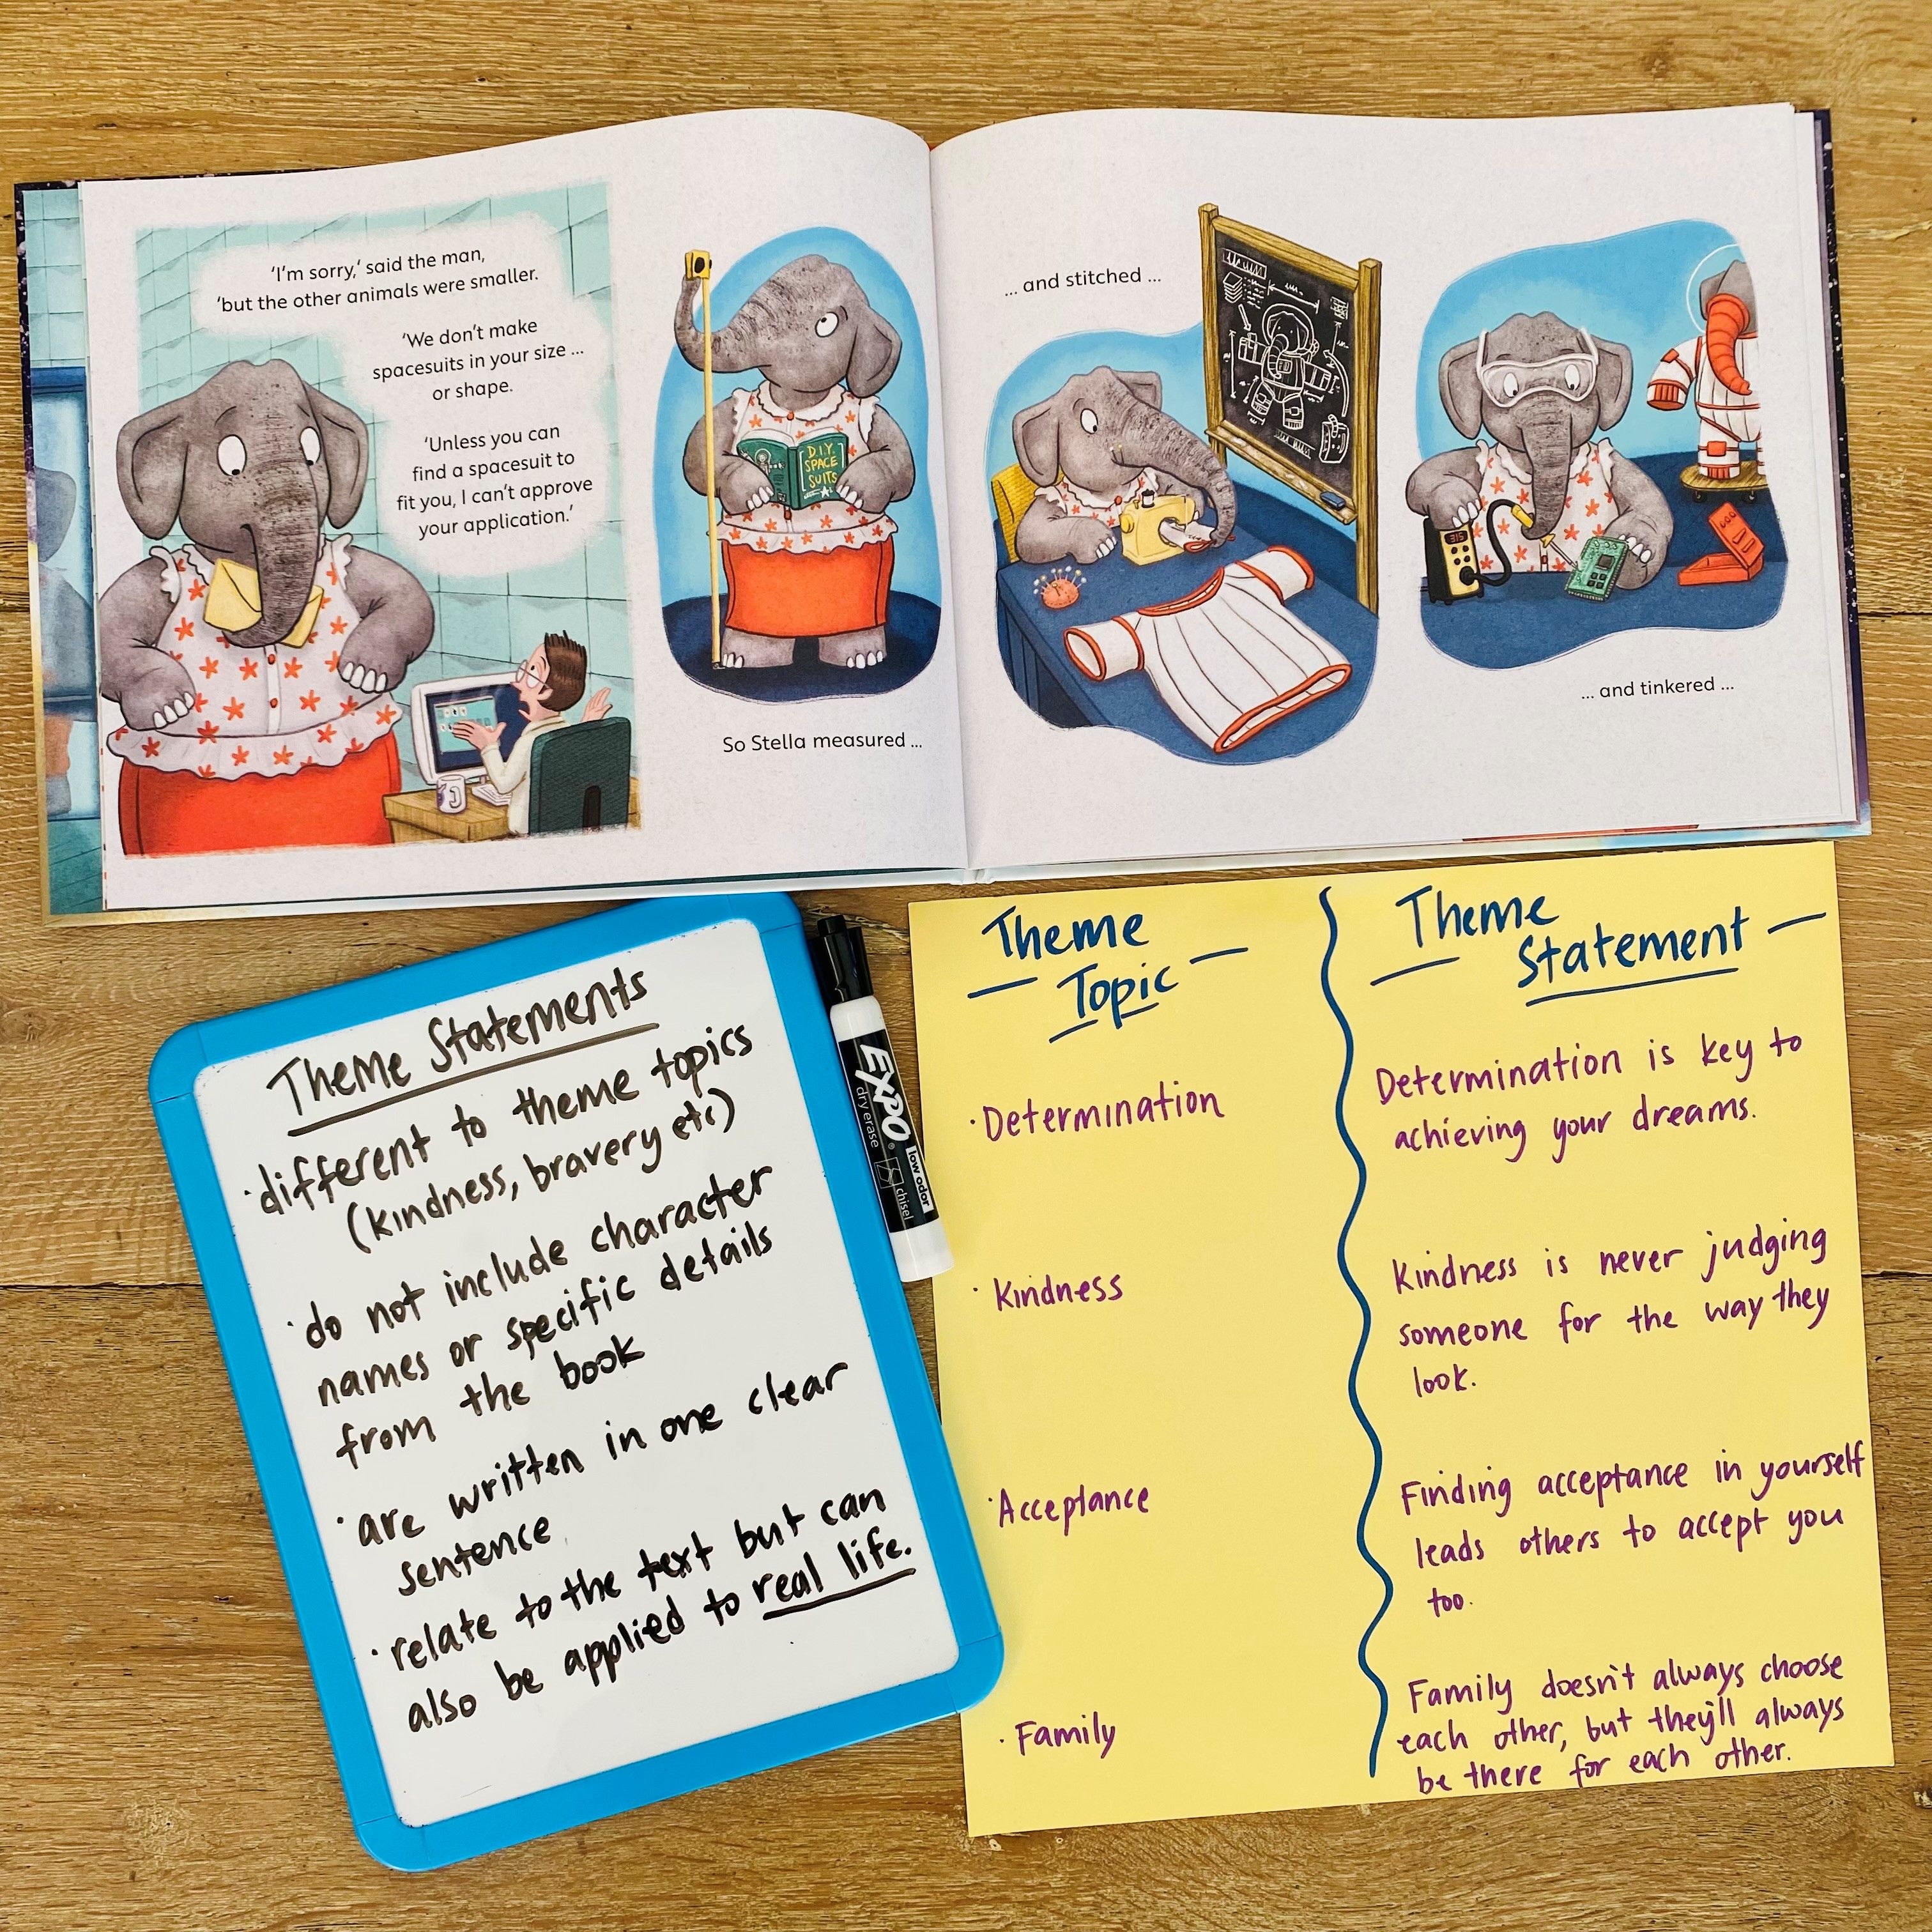 'I'm sorry,' said the man,
'but the other animals were smaller.
'We don't make
spacesuits in your size ...
or shape.
'Unless you can
find a spacesuit to
fit you, I can't approve
your application.'
D.I.Y.
SPACE
SUITS
So Stella measured ...
... and stitched ...
315
... and tinkered ...
Theme Statements
· different to theme topics
(kindness, bravery etc)
· do not include character
names or specific details
from the book
· are written in one clear
sentence
· relate to the text but can
also be applied to real life.
EXPO
dry erase
low odor
chisel
Theme
Topic
· Determination
· Kindness
· Acceptance
· Family
Theme
Statement
Determination is key to
achieving your dreams.
Kindness is never judging
someone for the way they
look.
Finding acceptance in yourself
leads others to accept you
too.
Family doesn't always choose
each other, but they'll always
be there for each other.